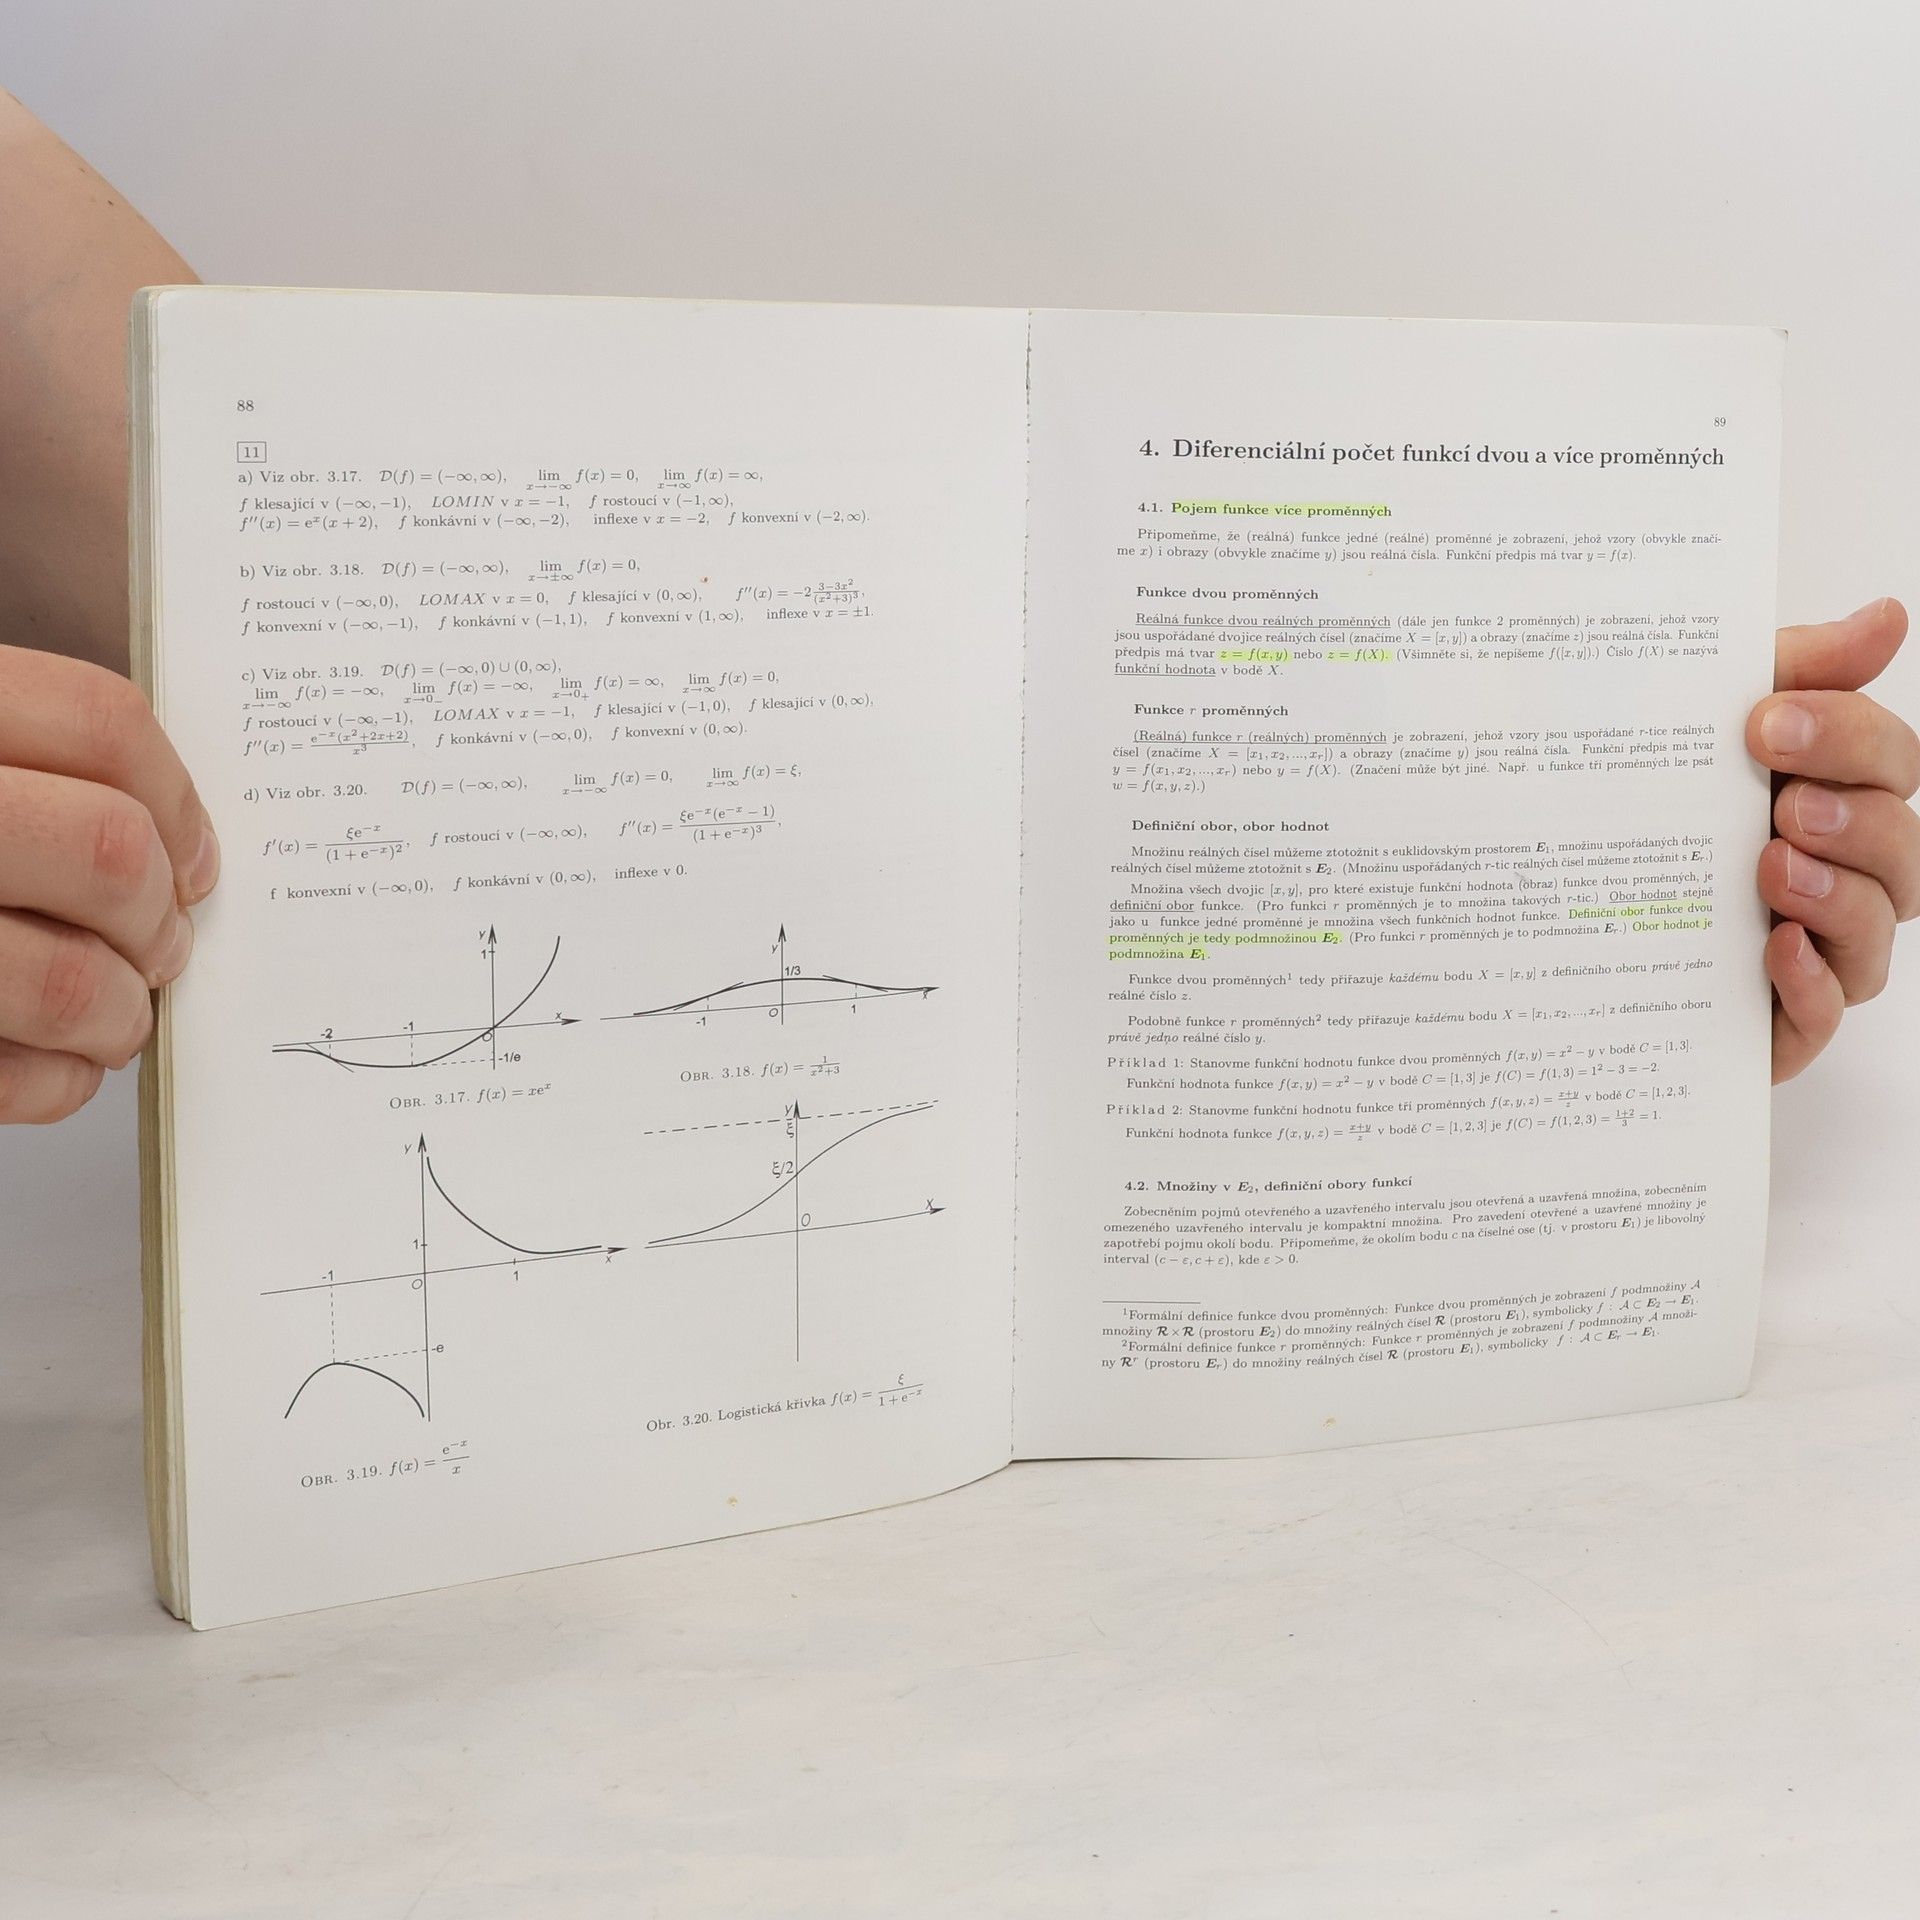 88
11
a) Viz obr. 3.17. D(f) = (−∞, ∞), lim x→−∞ f(x) = 0, lim x→∞ f(x) = ∞,
f klesající v (−∞, −1), LOMIN v x = −1, f rostoucí v (−1, ∞),
f′′(x) = eˣ(x + 2), f konkávní v (−∞, −2), inflexe v x = −2, f konvexní v (−2, ∞).
b) Viz obr. 3.18. D(f) = (−∞, ∞), lim x→±∞ f(x) = 0,
f rostoucí v (−∞, 0), LOMAX v x = 0, f klesající v (0, ∞), f′′(x) = −2 (3−3x²)/(x²+3)³,
f konvexní v (−∞, −1), f konkávní v (−1, 1), f konvexní v (1, ∞), inflexe v x = ±1.
c) Viz obr. 3.19. D(f) = (−∞, 0) ∪ (0, ∞),
lim x→−∞ f(x) = −∞, lim x→0₋ f(x) = −∞, lim x→0₊ f(x) = ∞, lim x→∞ f(x) = 0,
f rostoucí v (−∞, −1), LOMAX v x = −1, f klesající v (−1, 0), f klesající v (0, ∞),
f′′(x) = e⁻ˣ(x²+2x+2)/x³, f konkávní v (−∞, 0), f konvexní v (0, ∞).
d) Viz obr. 3.20. D(f) = (−∞, ∞), lim x→−∞ f(x) = 0, lim x→∞ f(x) = ξ,
f′(x) = ξe⁻ˣ/(1 + e⁻ˣ)², f rostoucí v (−∞, ∞), f′′(x) = ξe⁻ˣ(e⁻ˣ − 1)/(1 + e⁻ˣ)³,
f konvexní v (−∞, 0), f konkávní v (0, ∞), inflexe v 0.
y
1
-2
-1
O
x
-1/e
OBR. 3.17. f(x) = xeˣ
y
1/3
-1
O
1
x
OBR. 3.18. f(x) = 1/(x²+3)
y
1
-1
O
1
x
-e
OBR. 3.19. f(x) = e⁻ˣ/x
y
ξ
ξ/2
O
x
Obr. 3.20. Logistická křivka f(x) = ξ/(1 + e⁻ˣ)
89
4. Diferenciální počet funkcí dvou a více proměnných
4.1. Pojem funkce více proměnných
Připomeňme, že (reálná) funkce jedné (reálné) proměnné je zobrazení, jehož vzory (obvykle značí-
me x) i obrazy (obvykle značíme y) jsou reálná čísla. Funkční předpis má tvar y = f(x).
Funkce dvou proměnných
Reálná funkce dvou reálných proměnných (dále jen funkce 2 proměnných) je zobrazení, jehož vzory
jsou uspořádané dvojice reálných čísel (značíme X = [x, y]) a obrazy (značíme z) jsou reálná čísla. Funkční
předpis má tvar z = f(x, y) nebo z = f(X). (Všimněte si, že nepíšeme f([x, y]).) Číslo f(X) se nazývá
funkční hodnota v bodě X.
Funkce r proměnných
(Reálná) funkce r (reálných) proměnných je zobrazení, jehož vzory jsou uspořádané r-tice reálných
čísel (značíme X = [x₁, x₂, ..., xᵣ]) a obrazy (značíme y) jsou reálná čísla. Funkční předpis má tvar
y = f(x₁, x₂, ..., xᵣ) nebo y = f(X). (Značení může být jiné. Např. u funkce tří proměnných lze psát
w = f(x, y, z).)
Definiční obor, obor hodnot
Množinu reálných čísel můžeme ztotožnit s euklidovským prostorem E₁, množinu uspořádaných dvojic
reálných čísel můžeme ztotožnit s E₂. (Množinu uspořádaných r-tic reálných čísel můžeme ztotožnit s Eᵣ.)
Množina všech dvojic [x, y], pro které existuje funkční hodnota (obraz) funkce dvou proměnných, je
definiční obor funkce. (Pro funkci r proměnných je to množina takových r-tic.) Obor hodnot stejně
jako u funkce jedné proměnné je množina všech funkčních hodnot funkce. Definiční obor funkce dvou
proměnných je tedy podmnožinou E₂. (Pro funkci r proměnných je to podmnožina Eᵣ.) Obor hodnot je
podmnožina E₁.
Funkce dvou proměnných¹ tedy přiřazuje každému bodu X = [x, y] z definičního oboru právě jedno
reálné číslo z.
Podobně funkce r proměnných² tedy přiřazuje každému bodu X = [x₁, x₂, ..., xᵣ] z definičního oboru
právě jedno reálné číslo y.
Příklad 1: Stanovme funkční hodnotu funkce dvou proměnných f(x, y) = x² − y v bodě C = [1, 3].
Funkční hodnota funkce f(x, y) = x² − y v bodě C = [1, 3] je f(C) = f(1, 3) = 1² − 3 = −2.
Příklad 2: Stanovme funkční hodnotu funkce tří proměnných f(x, y, z) = (x+y)/z v bodě C = [1, 2, 3].
Funkční hodnota funkce f(x, y, z) = (x+y)/z v bodě C = [1, 2, 3] je f(C) = f(1, 2, 3) = (1+2)/3 = 1.
4.2. Množiny v E₂, definiční obory funkcí
Zobecněním pojmů otevřeného a uzavřeného intervalu jsou otevřená a uzavřená množina, zobecněním
omezeného uzavřeného intervalu je kompaktní množina. Pro zavedení otevřené a uzavřené množiny je
zapotřebí pojmu okolí bodu. Připomeňme, že okolím bodu c na číselné ose (tj. v prostoru E₁) je libovolný
interval (c − ε, c + ε), kde ε > 0.
¹Formální definice funkce dvou proměnných: Funkce dvou proměnných je zobrazení f podmnožiny A
množiny R × R (prostoru E₂) do množiny reálných čísel R (prostoru E₁), symbolicky f : A ⊂ E₂ → E₁.
²Formální definice funkce r proměnných: Funkce r proměnných je zobrazení f podmnožiny A množi-
ny Rʳ (prostoru Eᵣ) do množiny reálných čísel R (prostoru E₁), symbolicky f : A ⊂ Eᵣ → E₁.